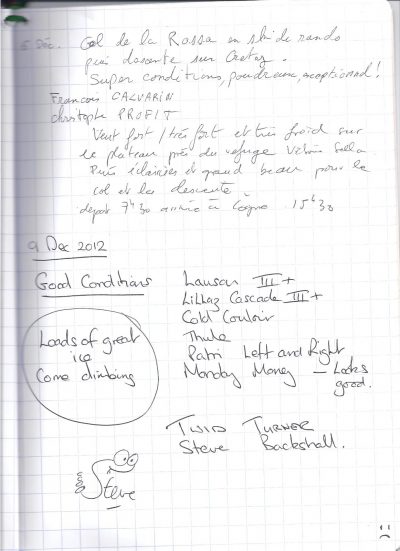 5 Déc. Col de la Rossa en ski de rando
puis descente sur Cretaz.
Super conditions, poudreuse, exceptionnel!
François CALVARIN
Christophe PROFIT
Vent fort / très fort et très froid sur
le plateau près du refuge Vittorio Sella
Puis éclaircies et grand beau pour le
col et la descente.
départ 7h30 arrivée à Cogne 15h30
9 Dec 2012
Good Conditions
Lauson III+
Lillaz Cascade III+
Cold Couloir
Thule
Patri Left and Right
Monday Money — Looks
good.
Loads of great
ice
Come climbing
TWID TURNER
Steve Backshall.
Steve